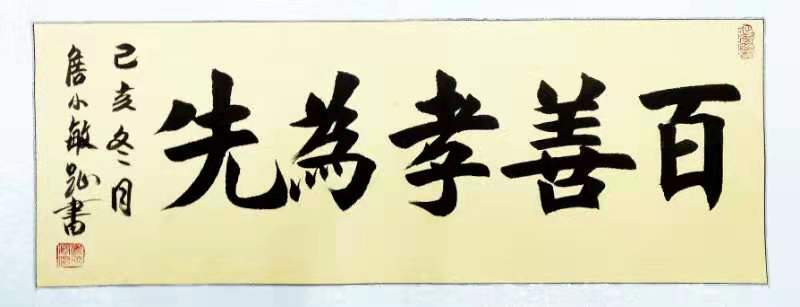 百善孝為先
己亥冬月
詹小敏書